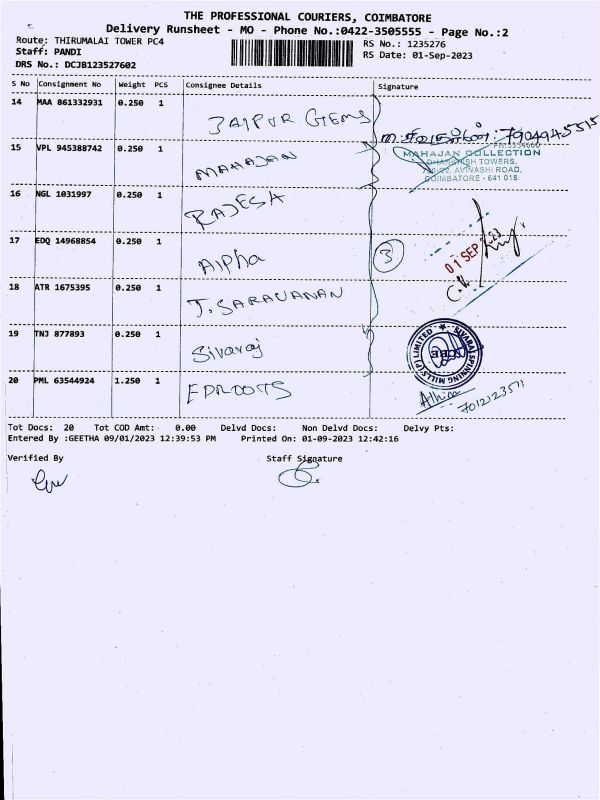 THE PROFESSIONAL COURIERS, COIMBATORE
Delivery Runsheet - MO - Phone No.:0422-3505555 - Page No.:2
Route: THIRUMALAI TOWER PC4
RS No.: 1235276
Staff: PANDI
RS Date: 01-Sep-2023
DRS No.: DCJB123527602
S No Consignment No Weight PCS Consignee Details Signature
14 MAA 861332931 0.250 1 JAIPUR GEMS
15 VPL 945388742 0.250 1 MAHAJAN
7904945515
MAHAJAN COLLECTION
TOWERS,
AVINASHI ROAD,
COIMBATORE - 641 018.
16 NGL 1031997 0.250 1 RAJESH
17 EDQ 14968854 0.250 1 Alpha 3
01 SEP
18 ATR 1675395 0.250 1 J. SARAVANAN
19 TNJ 877893 0.250 1 Sivaraj
SIVARAJ SPINNING MILLS (P) LIMITED
20 PML 63544924 1.250 1
7012123511
Tot Docs: 20 Tot COD Amt: 0.00 Delvd Docs: Non Delvd Docs: Delvy Pts:
Entered By :GEETHA 09/01/2023 12:39:53 PM Printed On: 01-09-2023 12:42:16
Verified By Staff Signature